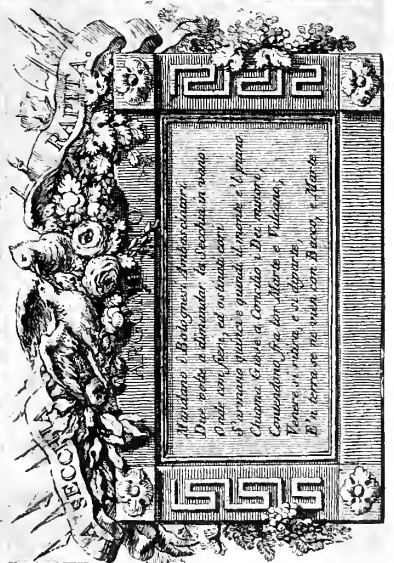 LA SECCHIA RAPITA.
Mandano i Bolognesi Ambasciatori
Due volte a dimandar la Secchia in vano:
Onde con fieri, ed ostinati cori
S'armano quinci e quindi il monte e 'l piano.
Chiama Giove a Concilio i Dei
Contendono fra lor Marte e Vulcano;
Venere si ritira, e si diparte,
E 'n terra se ne vien con Bacco, e Marte.